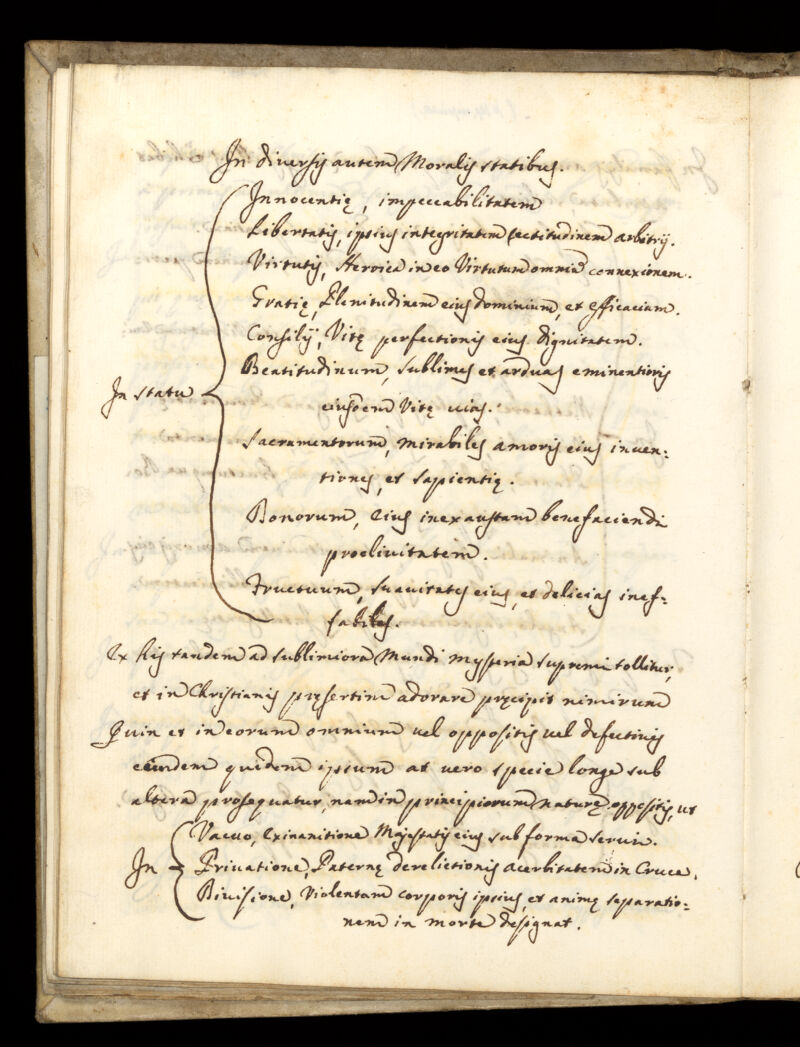 In diversis autem Moralis statibus.
Innocentię, impeccabilitatem
Libertatis, ipsius integritatem rectitudinem arbitrij.
Virtutis, Heroica in eo Virtutum omnia connexionem.
Gratię, Plenitudinem eius dominium, et efficaciam.
Consilij, Vitę perfectionis eius dignitatem.
In statu
Beatitudinum, sublimes et arduas eminentioris
eiusdem Vitę uias.
Sacramentorum, mirabiles amoris eius inuen:
tiones, et sapientię.
Bonorum, Eius inexaustam benefaciendi
procliuitatem.
Fructuum, suauitates eius, et delicias inef:
fabiles.
Ex his tandem ad sublimiora Mundi mysteria supremi tollitur,
et in Christianis pręsertim adorare pręcipit nimirum
Quin et in eorum omnium uel oppositis uel defectiuis
eundem quidem ipsum at vero specie longe sub
altera prosequatur, nam in principiorum naturę oppositis, ut
In
Vacuo, Exinanitione Majestatis eius sub forma serui.
Priuatione, Paternę derelictionis acerbitatem in Cruce.
Diuisione, Violentam corporis ipsius, et animę separatio:
nem in morte designat.